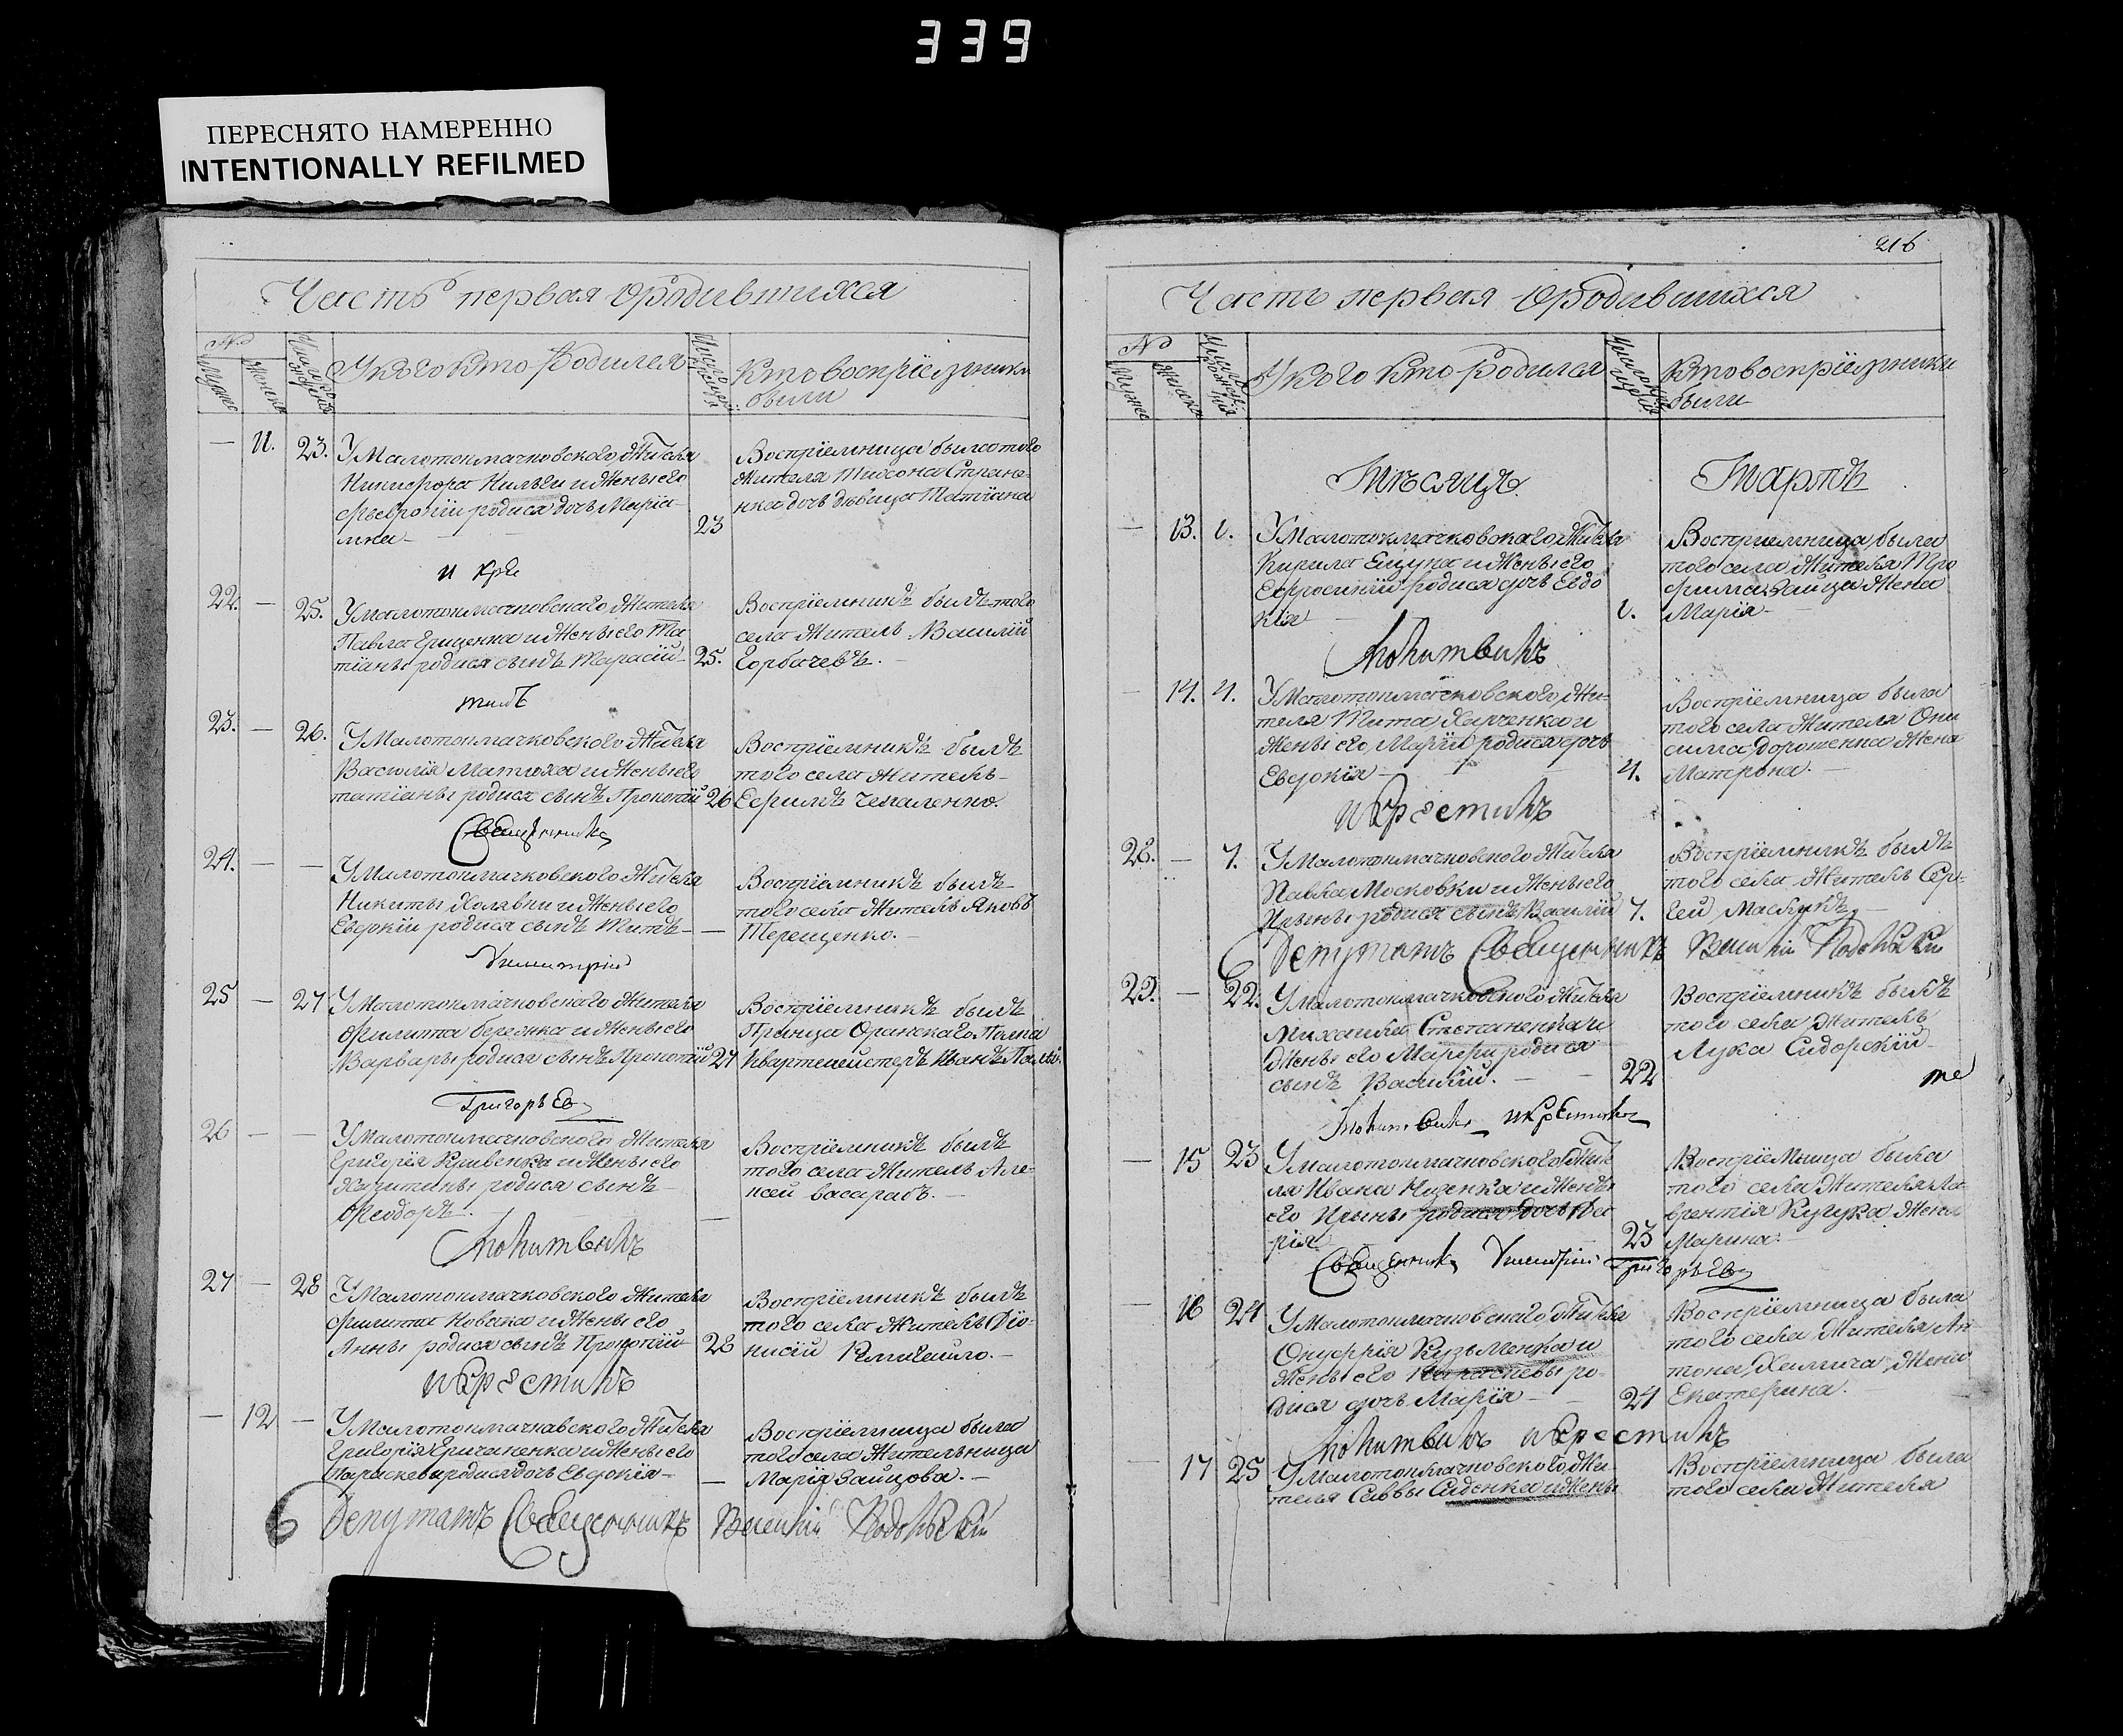 339
ПЕРЕСНЯТО НАМЕРЕННО
INTENTIONALLY REFILMED
Часть первая ѡ родившихся
№
У кого кто родился
Кто воспріемники
были
— 11. 23. У Малотокмачковского жителя
Никифора и жены его
Февроніи родися дочь Маріа-
мна — 23
Воспріемница была того
жителя Тихона Степане-
нка дочь девица Татіана
и кре
22. — 25. У Малотокмачковского жителя
Павла Гриценка и жены его Та
тіаны родися сынъ Тарасій — 25.
Воспріемникъ былъ того
села житель Василій
Горбачевъ. —
стилъ
23. — 26. У Малотокмачковского жителя
Василія Матюха и жены его
татіаны родися сынъ Прокопій 26
Воспріемникъ былъ
того села житель
Ефримъ Чепаленко.
Священникъ
24. — — У Малотокмачковского жителя
Никиты Халявки и жены его
Евдокіи родися сынъ Титъ — —
Воспріемникъ былъ
того села житель Яковъ
Терещенко. —
Димитрій
25 — 27 У Малотокмачковского жителя
Филипа Бережка и жены его
Варвары родися сынъ Прокопій 27
Воспріемникъ былъ
Принца Оранскаго Полка
Квартермистеръ Иванъ
Григорьевъ
26 — — У Малотокмачковского жителя
Григорія Кривенка и жены его
Харитины родися сынъ
Ѳеодоръ. — —
Воспріемникъ былъ
того села житель Але-
ксей Басарабъ. —
Молитвилъ
27 — 28 У Малотокмачковского жителя
Филипа Новака и жены его
Анны родися сынъ Прокопій 28
Воспріемникъ былъ
того села житель Діо-
нисій —
и крестилъ
— 12 — У Малотокмачковского жителя
Григорія Гричаненка и жены его
Параскевы родися дочь Евдокія — —
Воспріемница была
того села жительница
Марія Зайцова. —
Депутатъ Священникъ Василій Подольскій
216
Часть первая ѡ родившихся
№
У кого кто родился
Кто воспріемники
были
Мѣсяцъ Мартъ
— 13. 1. У Малотокмачковского жителя
Кирила Ещука и жены его
Ефросиніи родися дочь Евдо
кія — 1.
Воспріемница была
того села жителя Тро
фима Зайца жена
Марія —
Молитвилъ
— 14. 4. У Малотокмачковского жи-
теля Тита Харченка и
жены его Маріи родися дочь
Евдокія — 4.
Воспріемница была
того села жителя Они
сима Дорошенка жена
Матрона. —
и крестилъ
28. — 7. У Малотокмачковского жителя
Павла Московки и жены его
Ирыны родися сынъ Василій 7.
Воспріемникъ былъ
того села житель Сер-
гей
Депутатъ Священникъ Василій Подольскій
29. — 22. У Малотокмачковского жителя
Михаила Степаненка и
жены его родися
сынъ Василій. — 22
Воспріемникъ былъ
того села житель
Лука Сидорскій —
Молитвилъ и крестилъ
— 15 23 У Малотокмачковского жите
ля Ивана и жены
его Ирыны родися дочь Ма
рія — 23
Воспріемница была
того села жителя Ла
врентія Кугука жена
Марина.
Священникъ Димитрій Григорьевъ
— 16 24 У Малотокмачковского жителя
Онуфрія Кузьменка и
жены его Параскевы ро-
дися дочь Марія — 24
Воспріемница была
того села жителя Ан
тона жена
Екатерина.
Молитвилъ и крестилъ
— 17 25 У Малотокмачковского жи-
теля Саввы Сиденка и жены
Воспріемница была
того села жителя